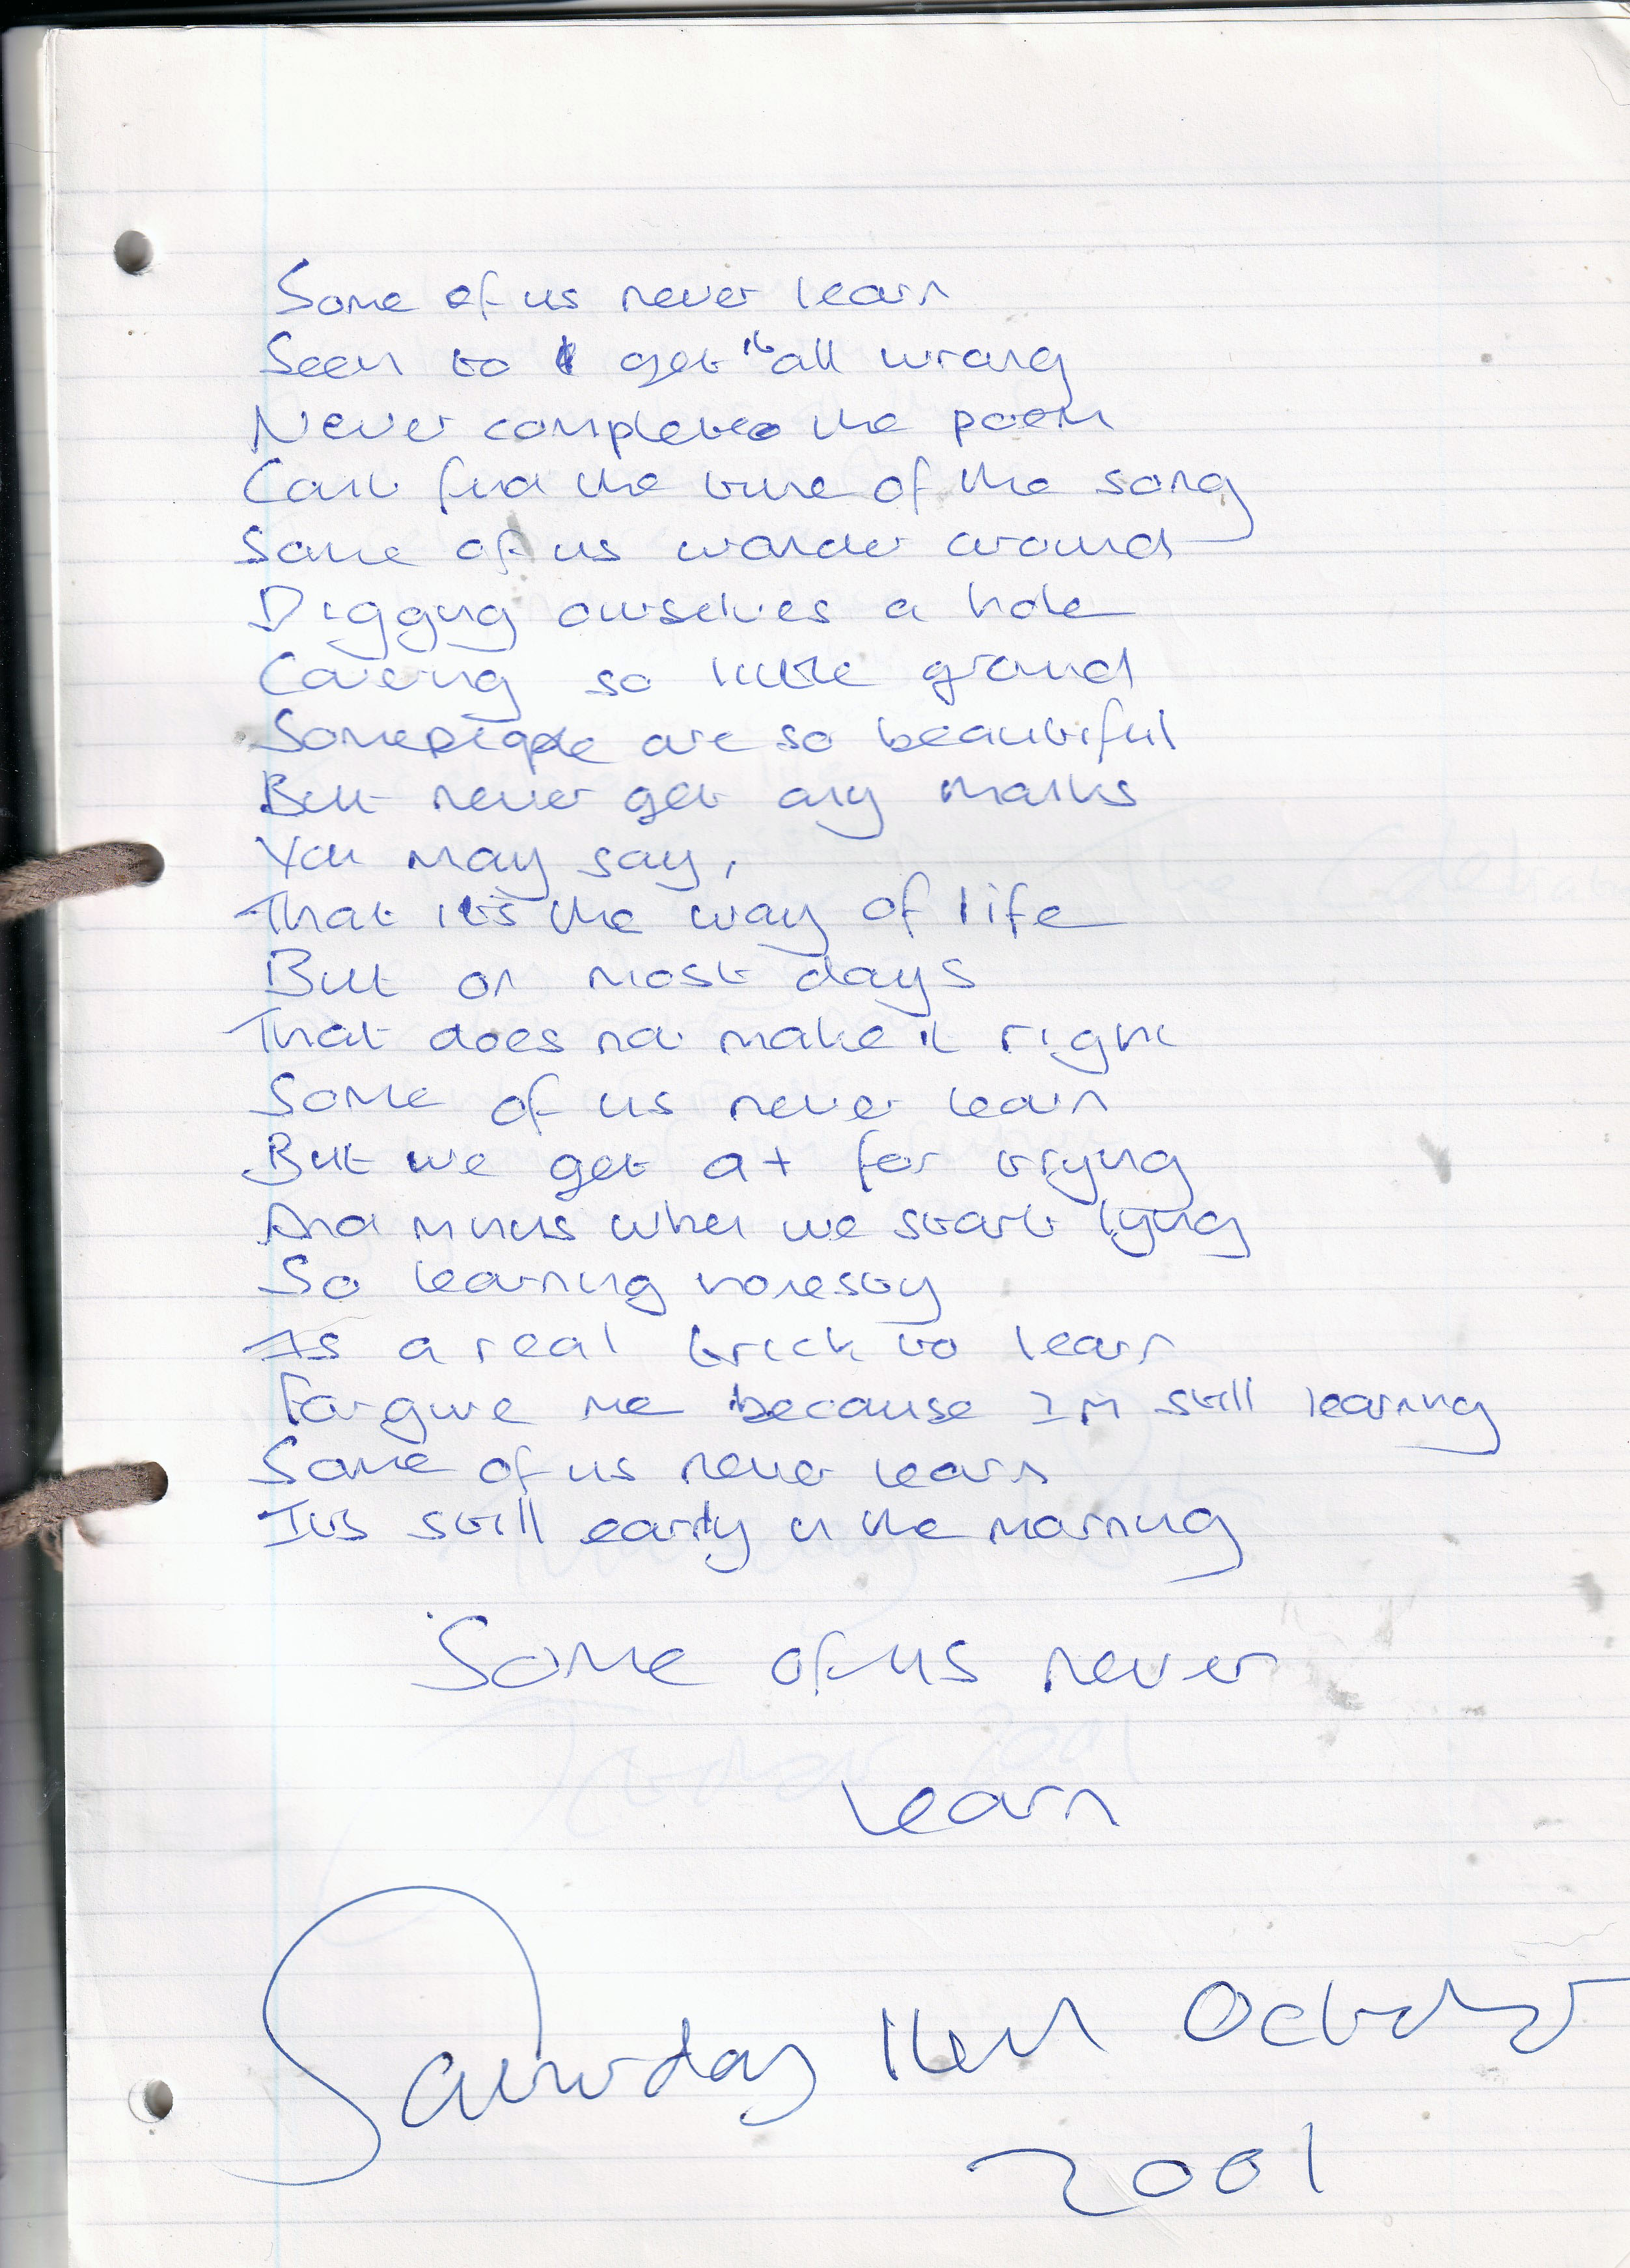 Some of us never learn
Seem to get it all wrong
Never completed the poem
Cant find the tune of the song
Some of us wander around
Digging ourselves a hole
Covering so little ground
Some people are so beautiful
But never get any marks
You may say,
That its the way of life
But on most days
That does not make it right
Some of us never learn
But we get a + for trying
And minus when we start lying
So learning honesty
Is a real trick to learn
Forgive me because Im still learning
Some of us never learn
Its still early in the morning
Some of us never
learn
Saturday October
2001